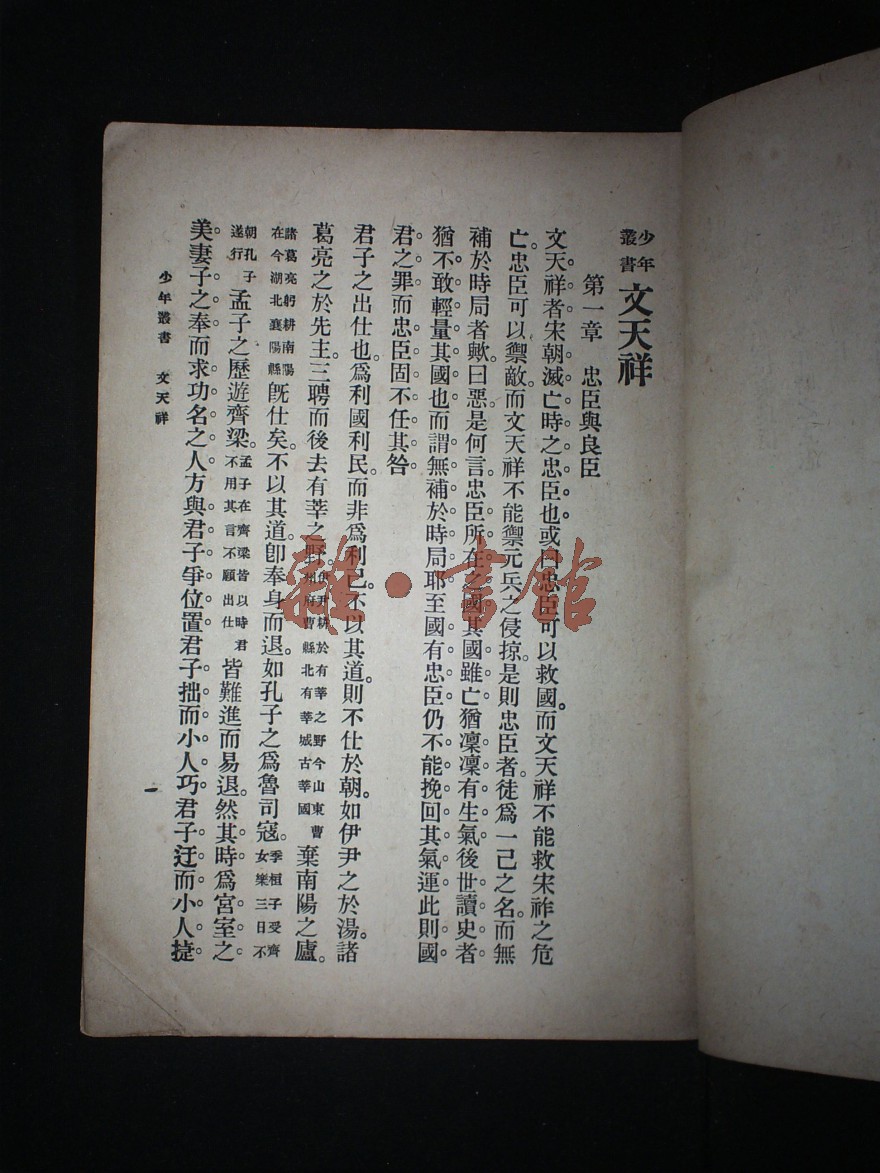 少年叢書 文天祥
第一章 忠臣與良臣
文天祥者宋朝滅亡時之忠臣也或曰忠臣可以救國而文天祥不能救宋祚之危
亡。忠臣可以禦敵。而文天祥不能禦元兵之侵掠。是則忠臣者。徒爲一己之名。而無
補於時局者歟。曰惡。是何言。忠臣所在之國。其國雖亡。猶凜凜有生氣。後世讀史者
猶不敢輕量其國也。而謂無補於時局耶。至國有忠臣。仍不能挽回其氣運。此則國
君之罪。而忠臣固不任其咎
君子之出仕也。爲利國利民。而非爲利己。不以其道。則不仕於朝。如伊尹之於湯。諸
葛亮之於先主。三聘而後去有莘之野。伊尹耕於有莘之野今山東曹州府曹縣北有莘城古莘國棄南陽之廬。
諸葛亮躬耕南陽在今湖北襄陽縣旣仕矣。不以其道。卽奉身而退。如孔子之爲魯司寇。季桓子受齊女樂三日不
朝孔子遂行孟子之歷遊齊梁。孟子在齊梁皆以時君不用其言不願出仕皆難進而易退。然其時爲宮室之
美。妻子之奉而求功名之人。方與君子爭位置。君子拙而小人巧。君子迂而小人捷
少年叢書 文天祥
一
雜·書館